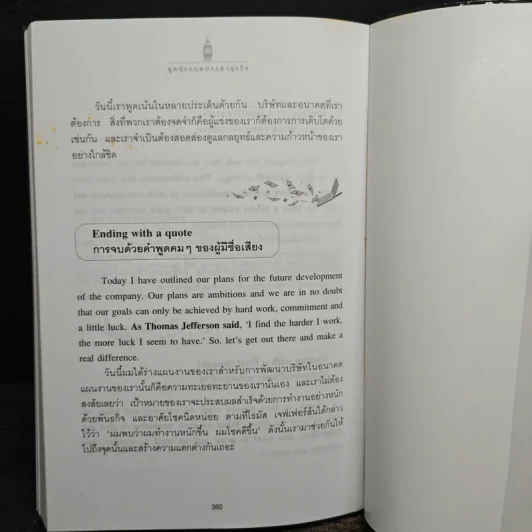 พูดอังกฤษประสาธุรกิจ
วันนี้เราพูดเน้นในหลายประเด็นด้วยกัน บริษัทและอนาคตที่เรา
ต้องการ สิ่งที่พวกเราต้องจดจำก็คือผู้แข่งของเราก็ต้องการการเติบโตด้วย
เช่นกัน และเราจำเป็นต้องสอดส่องดูแลกลยุทธ์และความก้าวหน้าของเรา
อย่างใกล้ชิด
Ending with a quote
การจบด้วยคำพูดคมๆ ของผู้มีชื่อเสียง
Today I have outlined our plans for the future development
of the company. Our plans are ambitions and we are in no doubt
that our goals can only be achieved by hard work, commitment and
a little luck. As Thomas Jefferson said, 'I find the harder I work,
the more luck I seem to have.' So, let's get out there and make a
real difference.
วันนี้ผมได้ร่างแผนงานของเราสำหรับการพัฒนาบริษัทในอนาคต
แผนงานของเรานั้นก็คือความทะเยอทะยานของเรานั่นเอง และเราไม่ต้อง
สงสัยเลยว่า เป้าหมายของเราจะประสบผลสำเร็จด้วยการทำงานอย่างหนัก
ด้วยพันธกิจ และอาศัยโชคนิดหน่อย ตามที่โธมัส เจฟเฟอร์สันได้กล่าว
ไว้ว่า 'ผมพบว่าผมทำงานหนักขึ้น ผมโชคดีขึ้น' ดังนั้นเรามาช่วยกันให้
ไปถึงจุดนั้นและสร้างความแตกต่างกันเถอะ
360